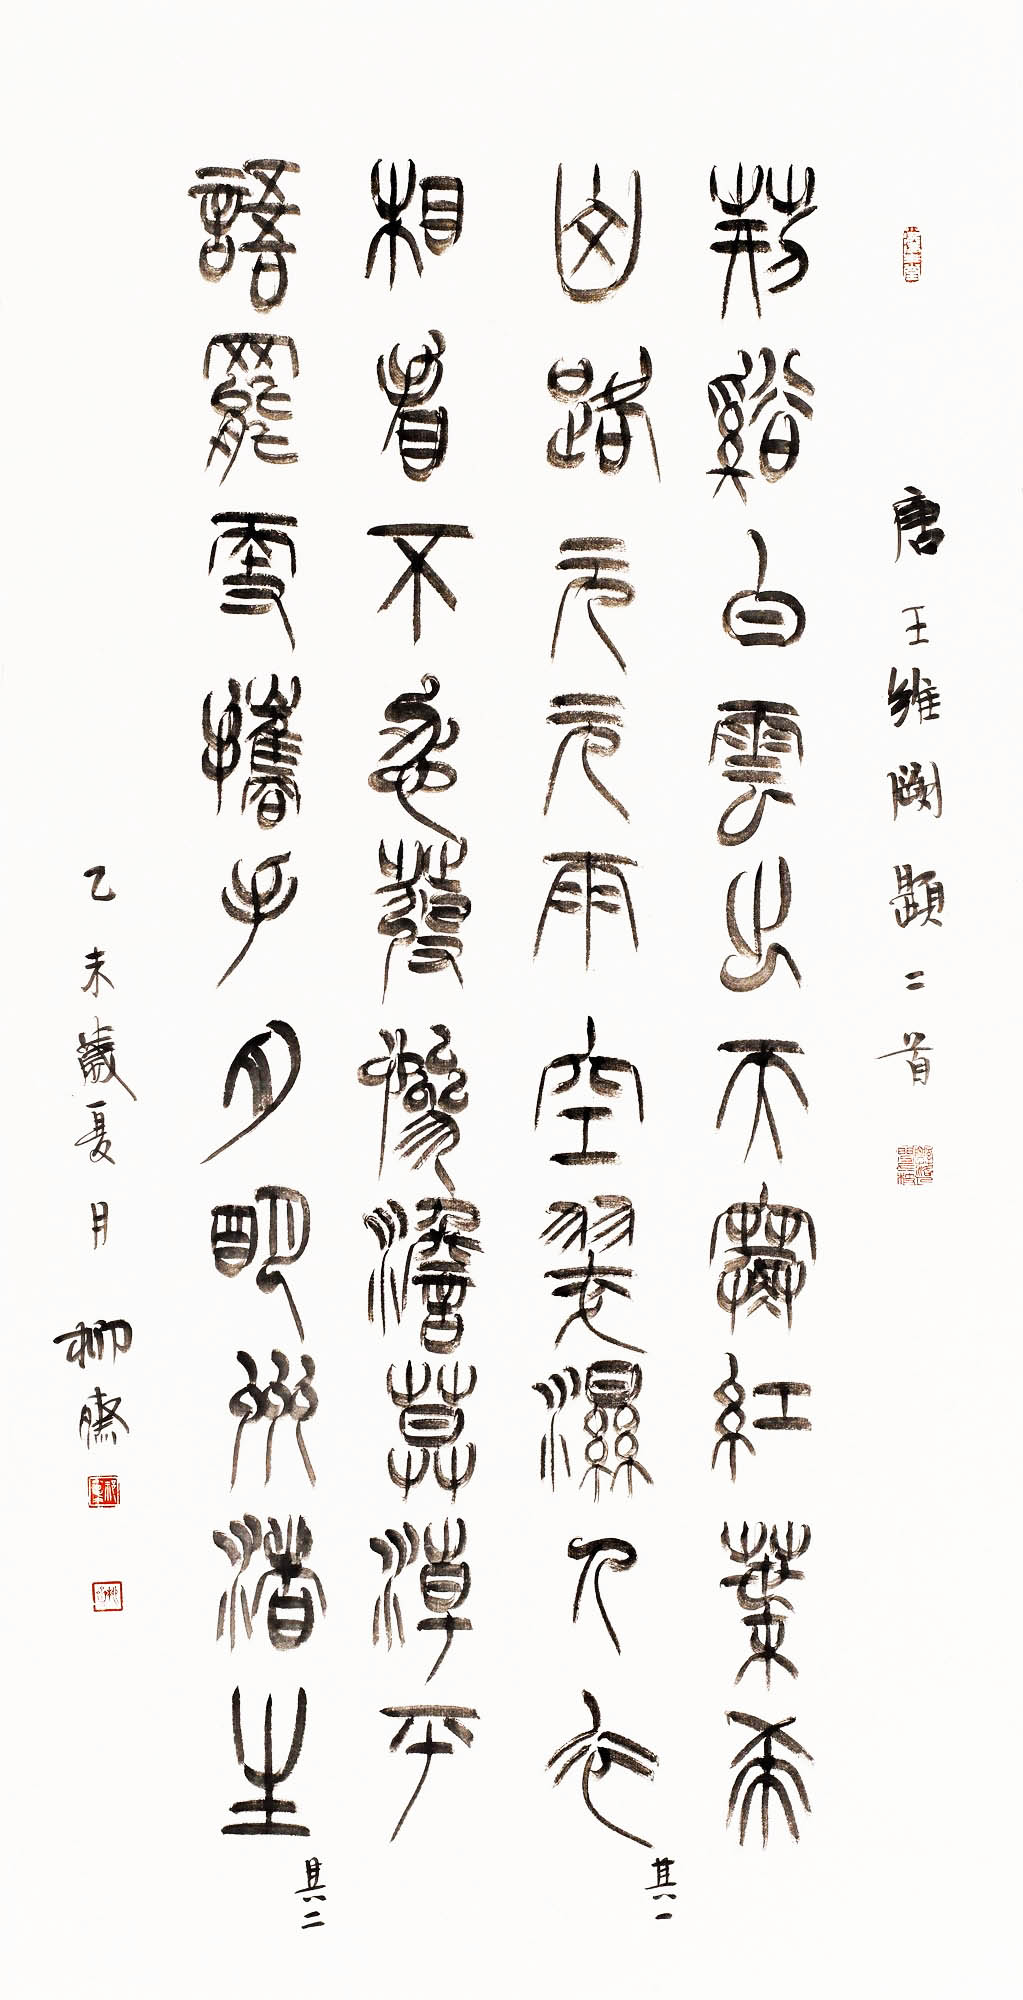 唐王維闕題二首
荊谿白雲出天寒紅葉希
山路元元雨空翠濕人衣
其一
相看不忍發慘澹莫潮平
語罷雪攜手月明州渚生
其二
乙未歲夏月柳齋